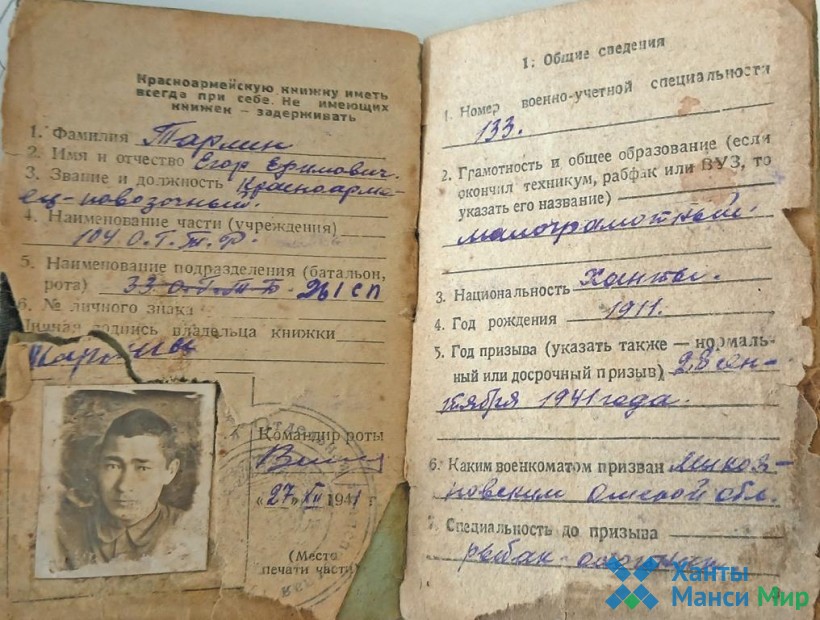 Красноармейскую книжку иметь
всегда при себе. Не имеющих
книжек — задерживать
1. Фамилия Тарлин
2. Имя и отчество Егор Ефимович.
3. Звание и должность Красноарме-
ец-повозочный.
4. Наименование части (учреждения)
104 О.Г.Т.Р.
5. Наименование подразделения (батальон,
рота) 33 261 СП
6. № личного знака
Личная подпись владельца книжки
Командир роты
«27» XII 1941 г
(Место
печати части)
1. Общие сведения
1. Номер военно-учетной специальности
133.
2. Грамотность и общее образование (если
окончил техникум, рабфак или ВУЗ, то
указать его название)
малограмотный.
3. Национальность Ханты.
4. Год рождения 1911.
5. Год призыва (указать также — нормаль-
ный или досрочный призыв) 28 сен-
тября 1941 года.
6. Каким военкоматом призван Микоя-
новским Омской обл.
7. Специальность до призыва
рыбак-охотник
Ханты
Манси Мир